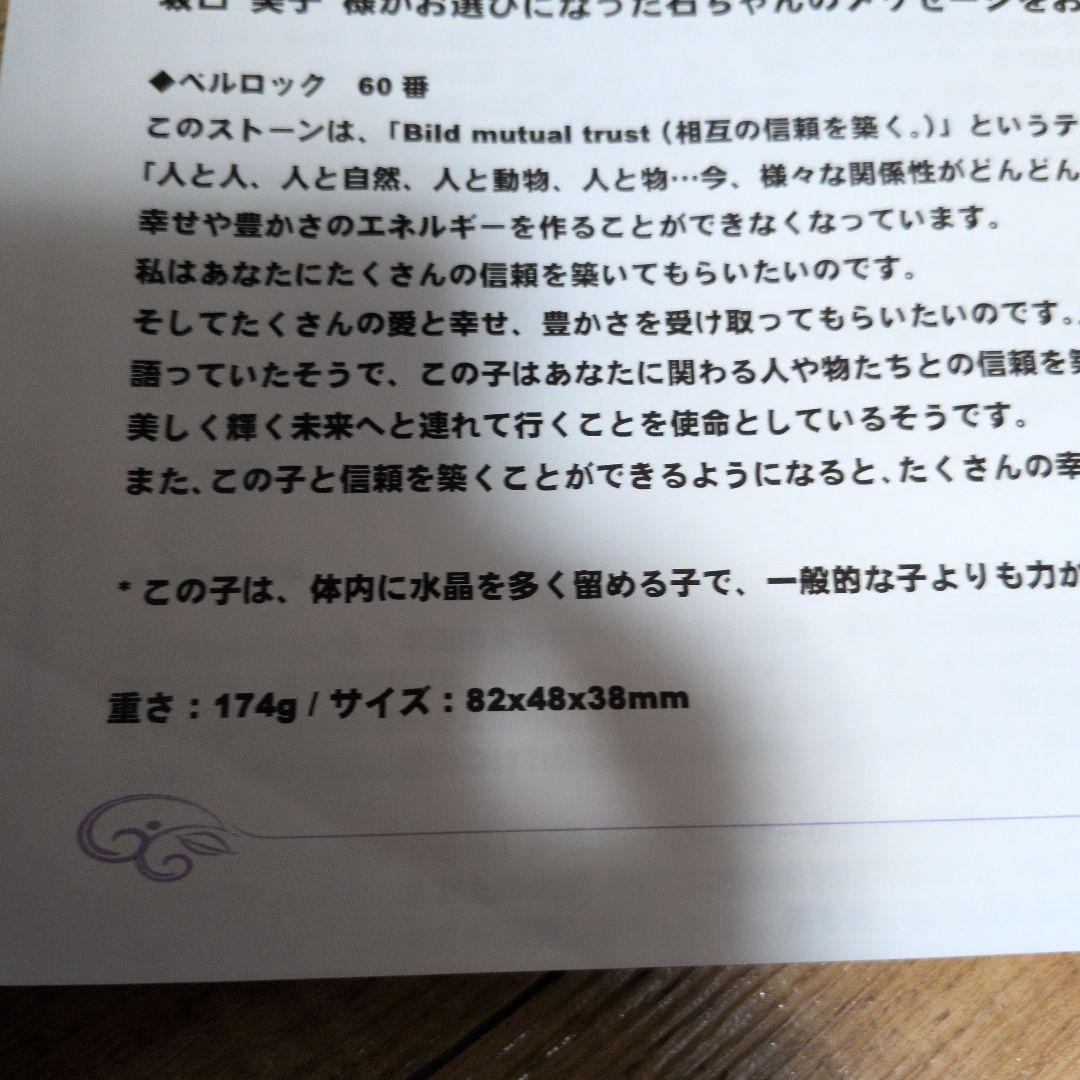 美子 様がお選びになった石ちゃんのメッセージをお
◆ベルロック 60 番
このストーンは、「Bild mutual trust（相互の信頼を築く。）」というテ
「人と人、人と自然、人と動物、人と物…今、様々な関係性がどんどん
幸せや豊かさのエネルギーを作ることができなくなっています。
私はあなたにたくさんの信頼を築いてもらいたいのです。
そしてたくさんの愛と幸せ、豊かさを受け取ってもらいたいのです。
語っていたそうで、この子はあなたに関わる人や物たちとの信頼を築
美しく輝く未来へと連れて行くことを使命としているそうです。
また、この子と信頼を築くことができるようになると、たくさんの幸
* この子は、体内に水晶を多く留める子で、一般的な子よりも力が
重さ : 174g / サイズ : 82x48x38mm